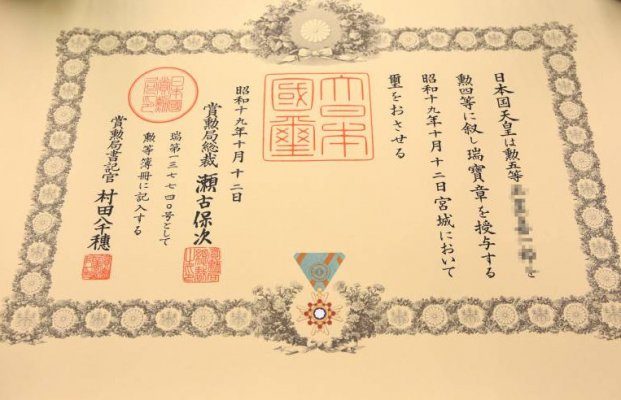 日本国天皇は勲五等 を
勲四等に叙し瑞寶章を授与する
昭和十九年十月十二日宮城において
璽をおさせる
大日本
國璽
昭和十九年十月十二日
賞勲局総裁 瀬古保次
瑞第一三七七四〇号として
勲等簿冊に記入する
賞勲局書記官 村田八千穂